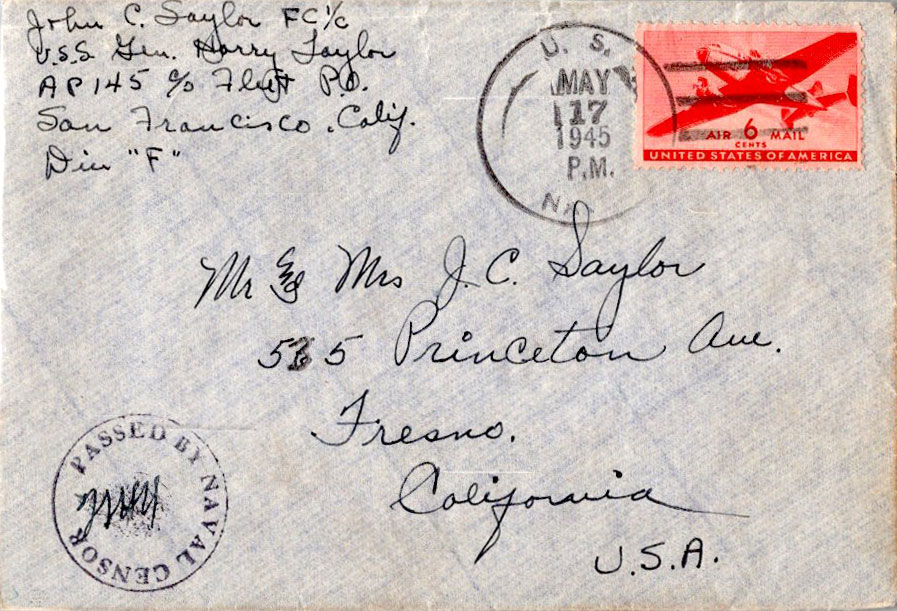 John C. Saylor FC 1/c
U.S.S. Gen. Harry Taylor
AP 145 c/o Fleet P.O.
San Francisco, Calif.
Div "F"
U. S.
MAY
17
1945
P.M.
AIR 6 MAIL
CENTS
UNITED STATES OF AMERICA
Mr & Mrs J. C. Saylor
535 Princeton Ave.
Fresno.
California
U.S.A.
PASSED BY NAVAL CENSOR